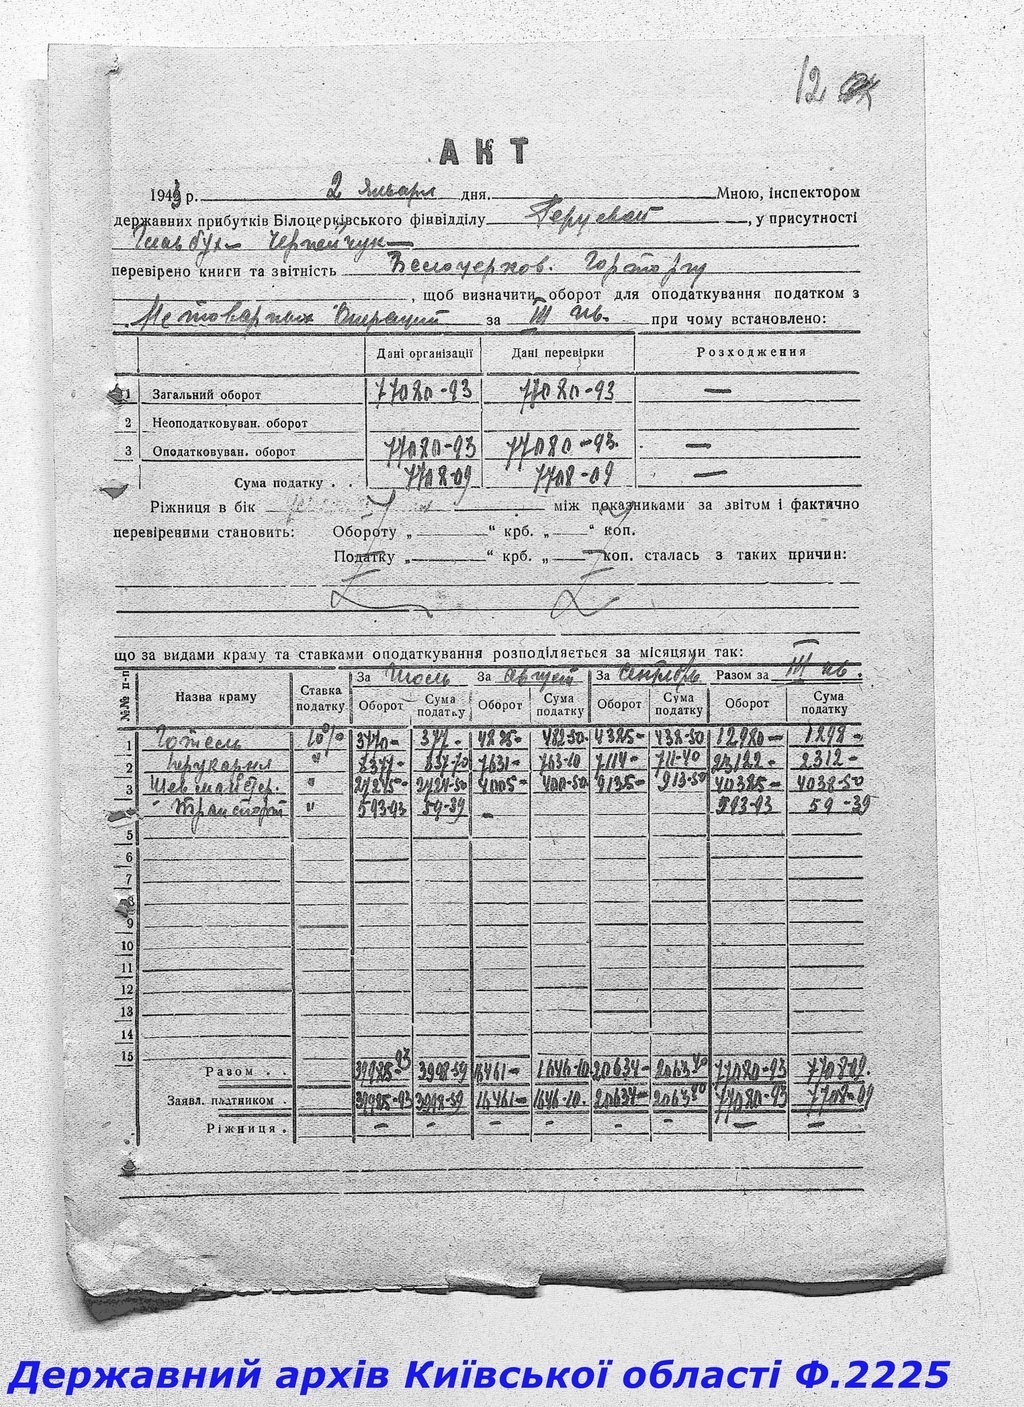 12
АКТ
1943 р. 2 Января дня. Мною, інспектором
державних прибутків Білоцерківського фінвідділу, у присутності
Главбух
перевірено книги та звітність Белоцерков. Горторгу
, щоб визначити оборот для оподаткування податком з
Нетоварных Операций за III кв. при чому встановлено:
Дані організації Дані перевірки Розходження
1 Загальний оборот 77080-93 77080-93 —
2 Неоподатковуван. оборот
3 Оподатковуван. оборот 77080-93 77080-93 —
Сума податку . . 7708-09 7708-09 —
Ріжниця в бік між показниками за звітом і фактично
перевіреними становить: Обороту „ “ крб. „ “ коп.
Податку „ “ крб. „ коп. сталась з таких причин:
що за видами краму та ставками оподаткування розподіляється за місяцями так:
№№ п-п Назва краму Ставка податку За Июль За Август За Сентябрь Разом за III кв.
Оборот Сума податку Оборот Сума податку Оборот Сума податку Оборот Сума податку
1 Готель 10% 3770- 377- 4825- 482-50 4385- 438-50 12980- 1298-
2 " 8377- 837-70 7631- 763-10 7114- 711-40 23122- 2312-
3 " 27245- 2724-50 4005- 400-50 9135- 913-50 40385- 4038-50
4 Транспорт " 593-93 59-39 - 593-93 59-39
5
6
7
8
9
10
11
12
13
14
15
Разом . . 39985-93 3998-59 16461- 1646-10 20634- 2063-40 77080-93 7708-09
Заявл. платником . 39985-93 3998-59 16461- 1646-10. 20634- 2063-40 77080-93 7708-09
Ріжниця . - - - - - - - -
Державний архів Київської області Ф.2225